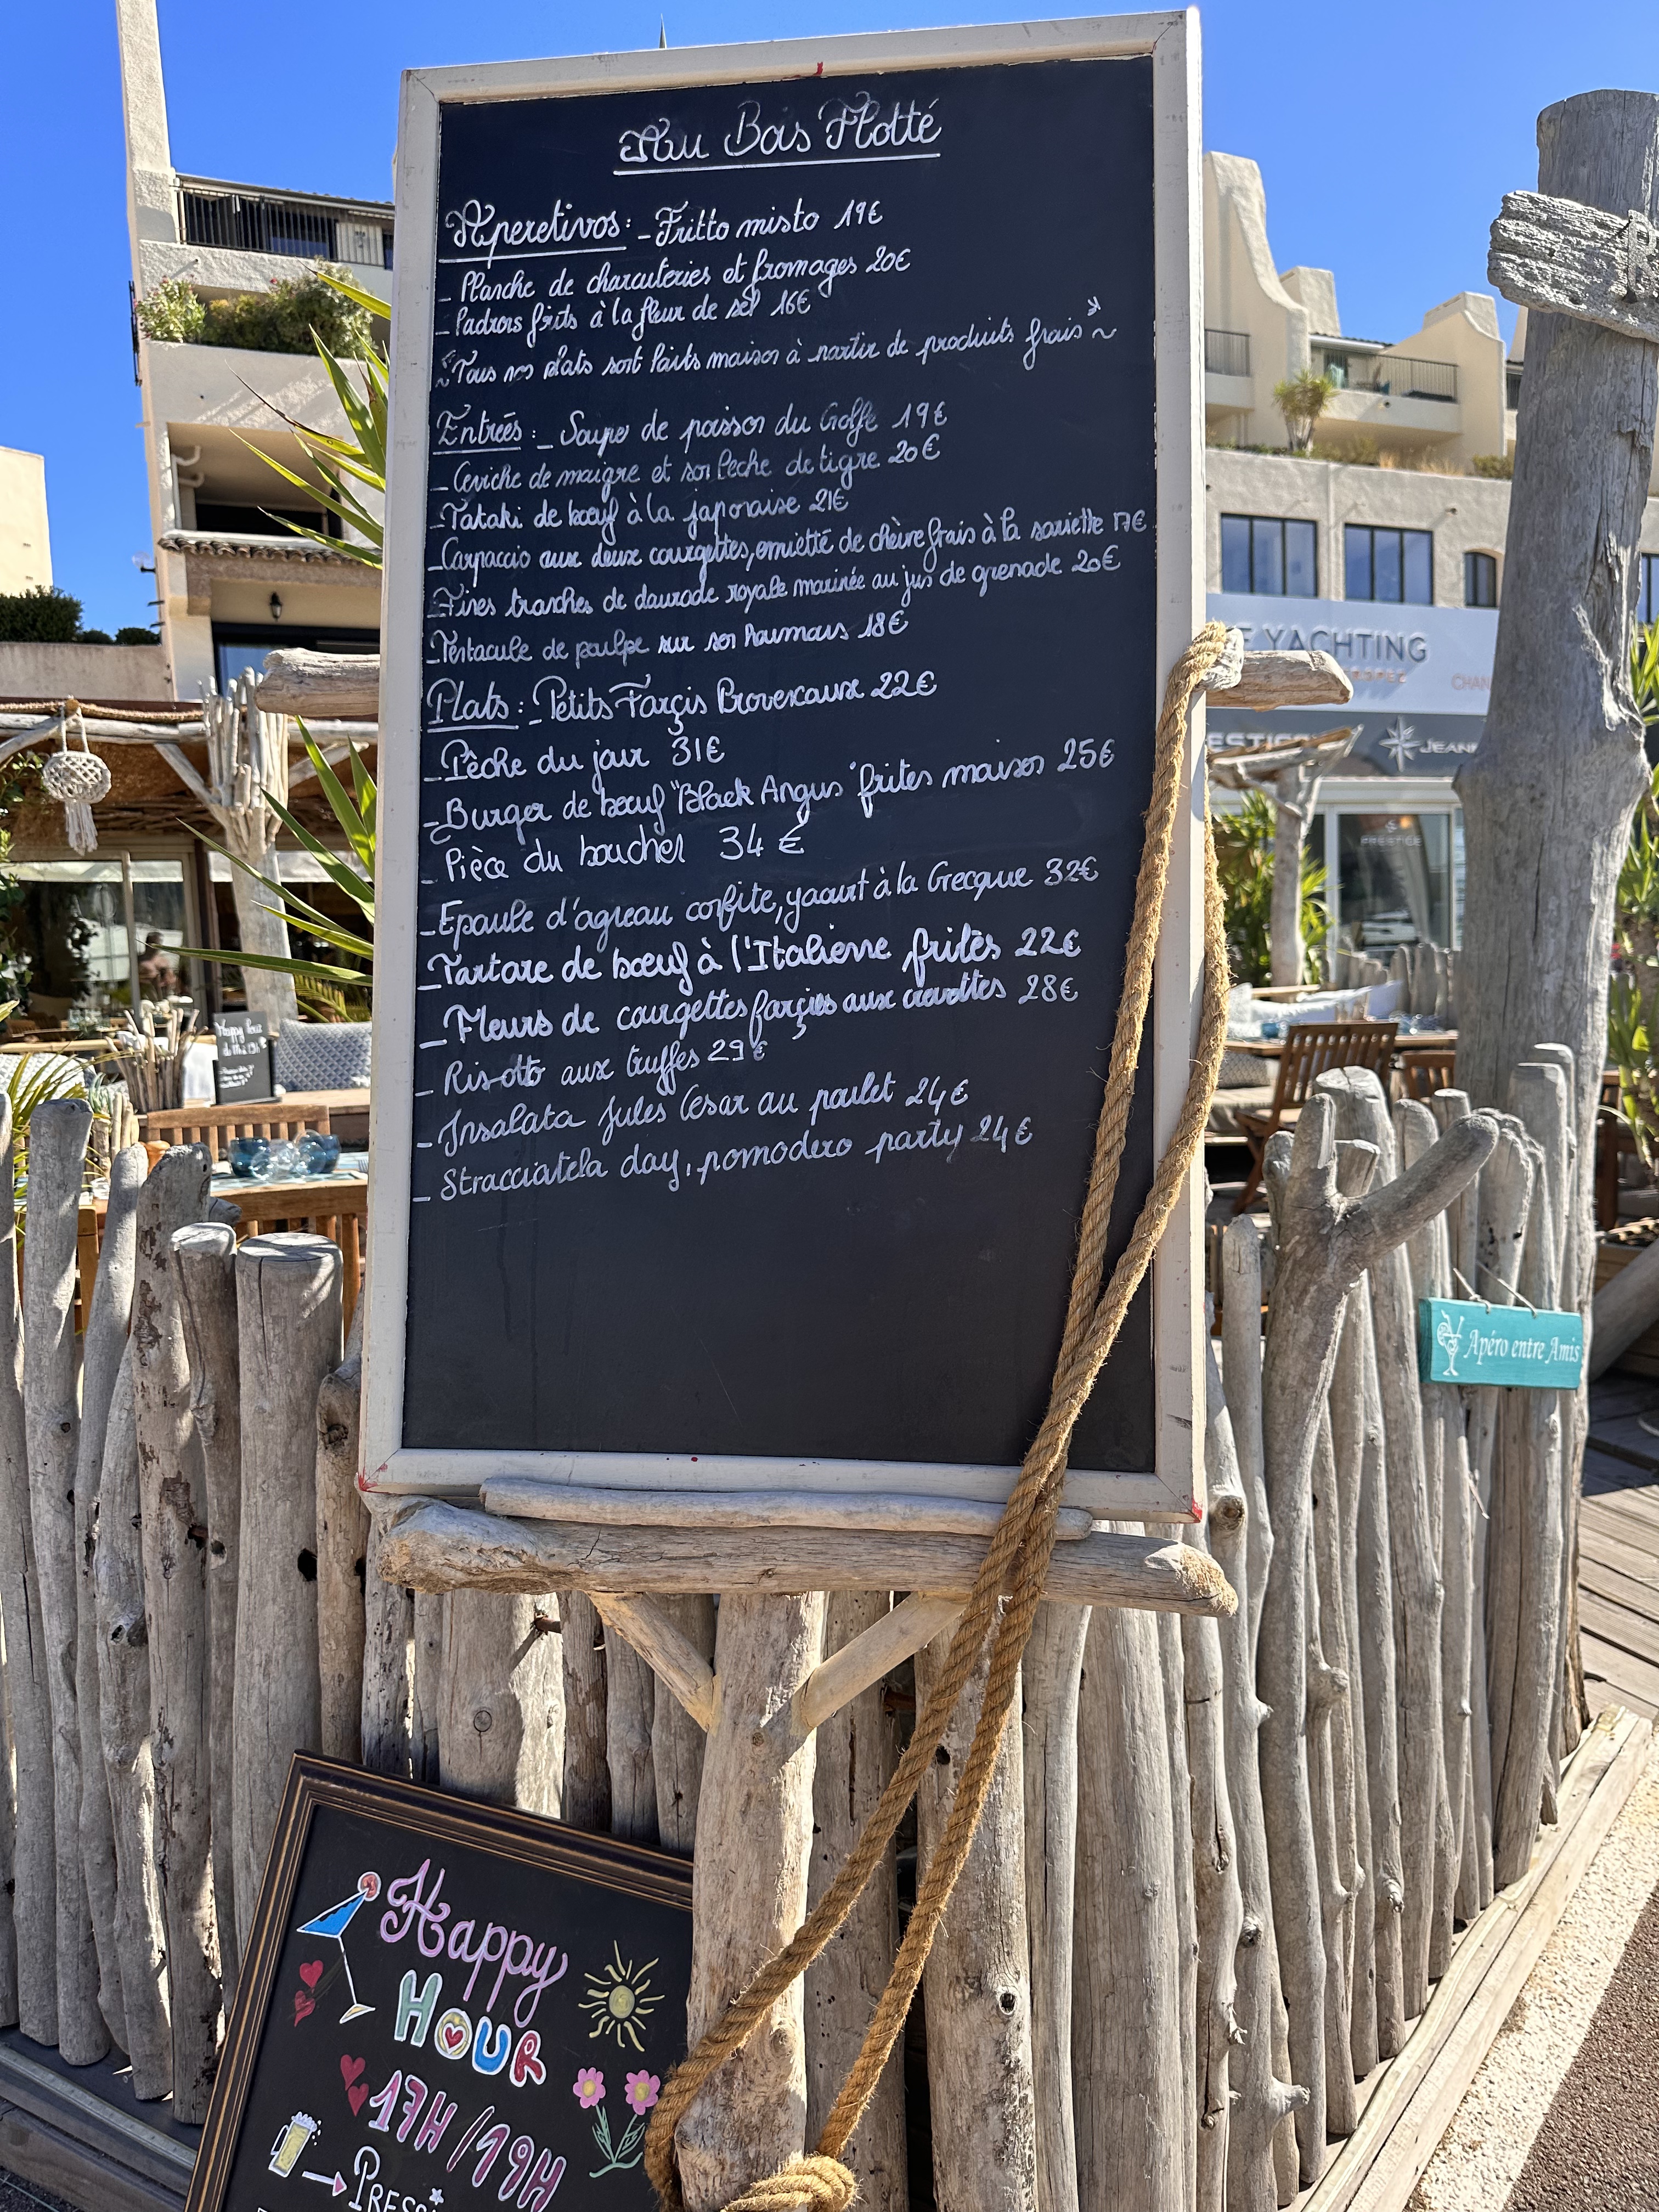 Au Bois Flotté
Aperetivos: - Fritto misto 19€
- Planche de charcuteries et fromages 20€
- Padrons frits à la fleur de sel 16€
"Tous nos plats sont faits maison à partir de produits frais"
Entrées: - Soupe de poisson du Golfe 19€
- Ceviche de maigre et son Leche de tigre 20€
- Tataki de bœuf à la japonaise 21€
- Carpaccio aux deux courgettes, emietté de chèvre frais à la sariette 17€
- Fines tranches de daurade royale marinée au jus de grenade 20€
- Tentacule de poulpe sur son houmous 18€
Plats: - Petits Farçis Provencaux 22€
- Pêche du jour 31€
- Burger de bœuf "Black Angus" frites maison 25€
- Pièce du boucher 34€
- Epaule d'agneau confite, yaourt à la Grecque 32€
- Tartare de bœuf à l'Italienne frites 22€
- Fleurs de courgettes farçies aux crevettes 28€
- Risotto aux truffes 29€
- Insalata Jules Cesar au poulet 24€
- Stracciatela day, pomodero party 24€
E YACHTING
JEANN
PRESTIGE
Happy hour
Apéro entre Amis
Happy
HOUR
17H/19H